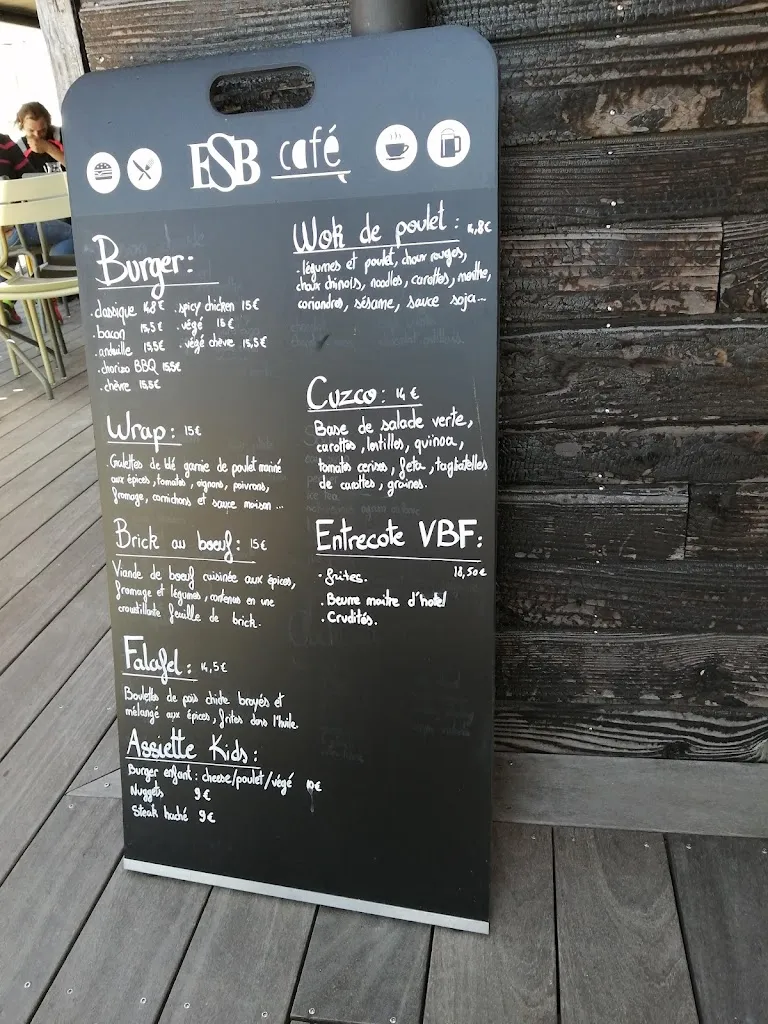 ESB café
Burger:
.classique 14,8€ .spicy chicken 15€
.bacon 15,5€ .végé 15€
.andouille 15,5€ .végé chèvre 15,5€
.chorizo BBQ 15,5€
.chèvre 15,5€
Wrap: 15€
.Galettes de blé garnie de poulet mariné
aux épices, tomates, oignons, poivrons,
fromage, cornichons et sauce maison...
Brick au boeuf: 15€
Viande de boeuf cuisinée aux épices,
fromage et légumes, contenus en une
croustillante feuille de brick.
Falafel: 14,5€
Boulettes de pois chiche broyés et
mélangé aux épices, frites dans l'huile
Assiette Kids:
Burger enfant: cheese/poulet/végé 10€
Nuggets 9€
Steak haché 9€
Wok de poulet: 14,8€
.légumes et poulet, choux rouges,
choux chinois, noodles, carottes, menthe,
coriandres, sésame, sauce soja...
Cuzco: 14€
Base de salade verte,
carottes, lentilles, quinoa,
tomates cerises, feta, tagliatelles
de carottes, graines.
Entrecote VBF:
18,50€
.frites.
.Beurre maitre d'hotel
.Crudités.